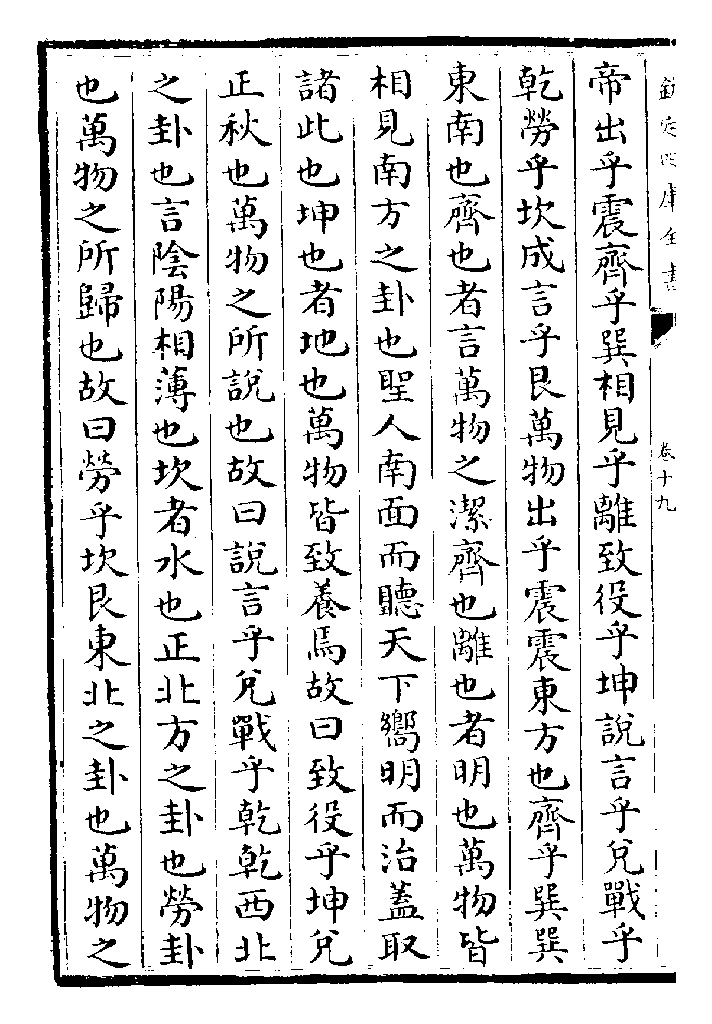 欽定四庫全書
卷十九
帝出乎震齊乎巽相見乎離致役乎坤說言乎兌戰乎
乾勞乎坎成言乎艮萬物出乎震震東方也齊乎巽巽
東南也齊也者言萬物之潔齊也離也者明也萬物皆
相見南方之卦也聖人南面而聽天下嚮明而治蓋取
諸此也坤也者地也萬物皆致養焉故曰致役乎坤兌
正秋也萬物之所說也故曰說言乎兌戰乎乾乾西北
之卦也言陰陽相薄也坎者水也正北方之卦也勞卦
也萬物之所歸也故曰勞乎坎艮東北之卦也萬物之